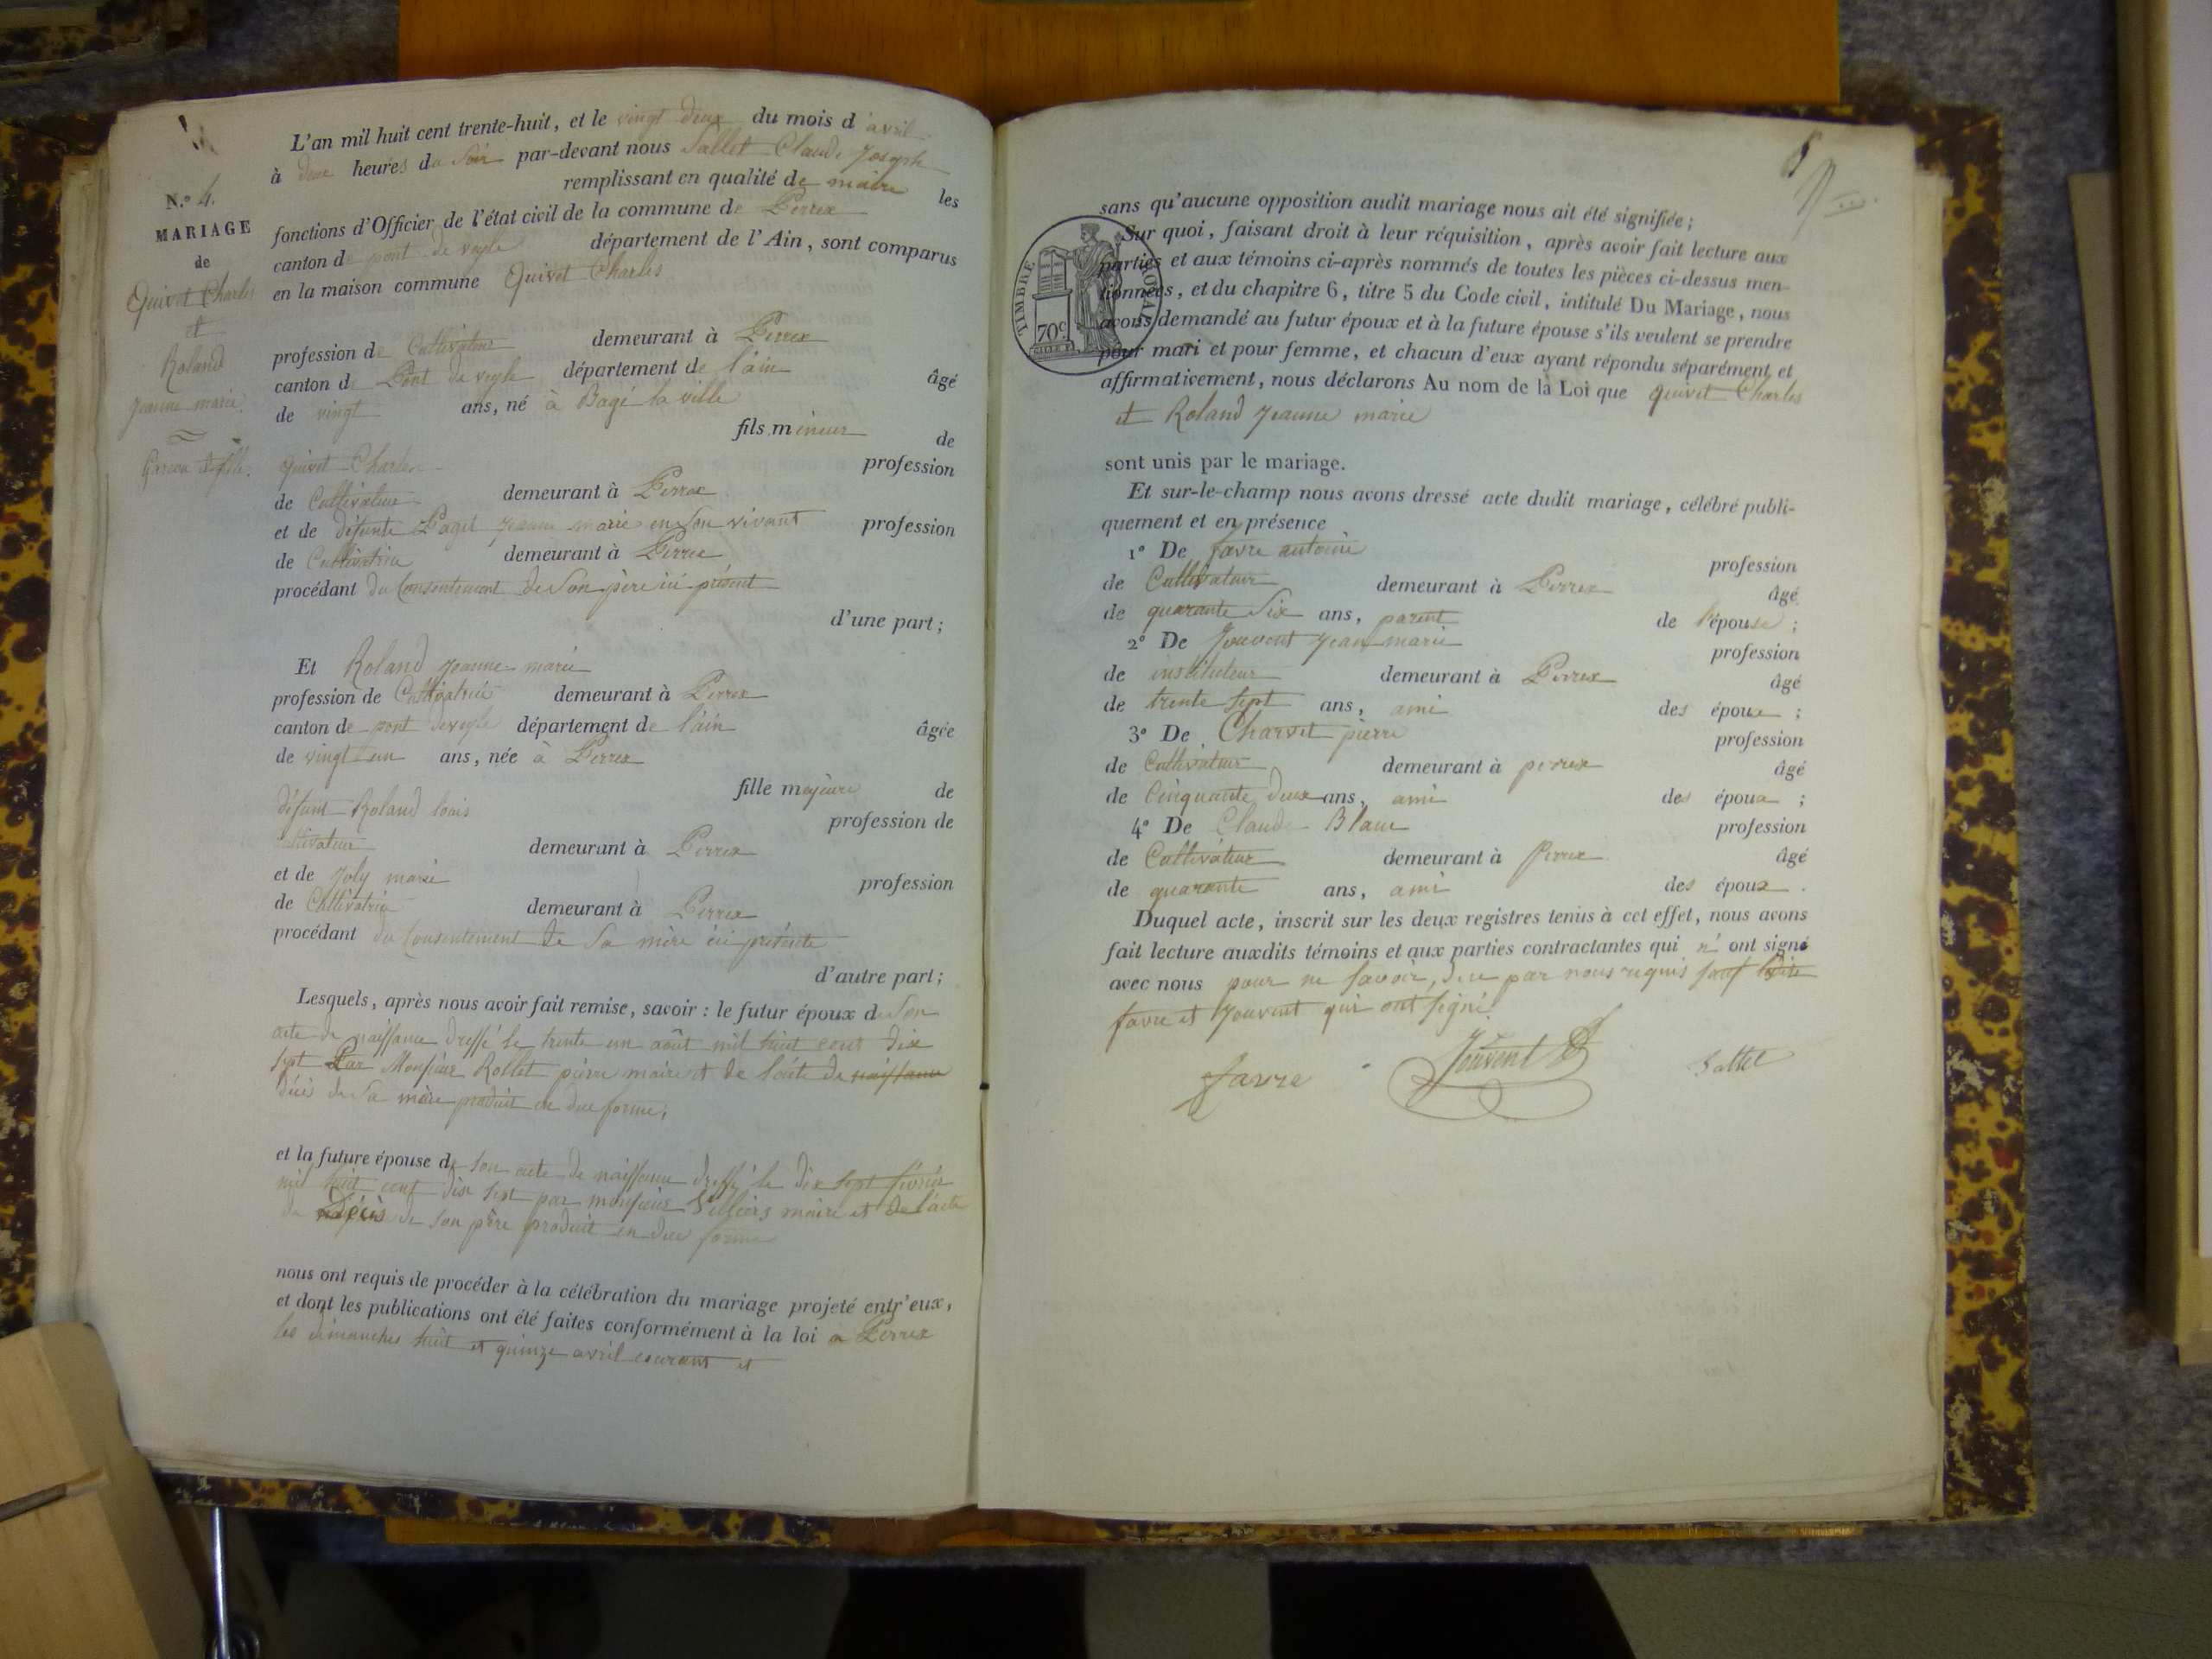 L'an mil huit cent trente-huit, et le vingt deux du mois d'avril
à deux heures du Soir par-devant nous Sallet Claude Joseph
remplissant en qualité de maire les
fonctions d'Officier de l'état civil de la commune de Perrex
canton de pont de veyle département de l'Ain, sont comparus
en la maison commune Quivet Charles
profession de Cultivateur demeurant à Perrex
canton de Pont de veyle département de l'ain âgé
de vingt ans, né à Bagé la ville
fils mineur de
quivet Charles profession
de Cultivateur demeurant à Perrex
et de défunte Paget jeanne marie en Son vivant profession
de Cultivatrice demeurant à Perrex
procédant du Consentement de Son père ici présent
d'une part;
Et Roland jeanne marie
profession de Cultivatrice demeurant à Perrex
canton de pont de veyle département de l'ain âgée
de vingt un ans, née à Perrex
fille majeure de
défunt Roland louis profession de
Cultivateur demeurant à Perrex
et de Joly marie profession
de Cultivatrice demeurant à Perrex
procédant du Consentement de Sa mère ici présente
d'autre part;
Lesquels, après nous avoir fait remise, savoir: le futur époux de Son
acte de naissance dressé le trente un août mil huit cent dix
sept Par Monsieur Rollet pierre maire et de l'acte de naissance
décès de Sa mère produit en due forme,
et la future épouse de son acte de naissance dressé le dix sept février
mil huit cent dix sept par monsieur maire et de l'acte
de décès de son père produit en due forme
nous ont requis de procéder à la célébration du mariage projeté entr'eux,
et dont les publications ont été faites conformément à la loi à Perrex
les dimanches huit et quinze avril courant et
N.º 4.
MARIAGE
de
Quivet Charles
et
Roland
jeanne marie.
Garçon et fille.
sans qu'aucune opposition audit mariage nous ait été signifiée;
Sur quoi, faisant droit à leur réquisition, après avoir fait lecture aux
parties et aux témoins ci-après nommés de toutes les pièces ci-dessus men-
tionnées, et du chapitre 6, titre 5 du Code civil, intitulé Du Mariage, nous
avons demandé au futur époux et à la future épouse s'ils veulent se prendre
pour mari et pour femme, et chacun d'eux ayant répondu séparément et
affirmativement, nous déclarons Au nom de la Loi que quivet Charles
et Roland jeanne marie
sont unis par le mariage.
Et sur-le-champ nous avons dressé acte dudit mariage, célébré publi-
quement et en présence
1º De favre antoine profession
de Cultivateur demeurant à Perrex âgé
de quarante Six ans, parent de l'épouse;
2º De Jouvent jean marie profession
de instituteur demeurant à Perrex âgé
de trente sept ans, ami des époux;
3º De Charvet pierre profession
de Cultivateur demeurant à perrex âgé
de Cinquante deux ans, ami des époux;
4º De Claude Blanc profession
de Cultivateur demeurant à Perrex âgé
de quarante ans, ami des époux.
Duquel acte, inscrit sur les deux registres tenus à cet effet, nous avons
fait lecture auxdits témoins et aux parties contractantes qui n'ont signé
avec nous pour ne Savoir, de ce par nous requis sauf
favre et Jouvent qui ont signé.
favre Jouvent Sallet
TIMBRE ROYAL
70c.